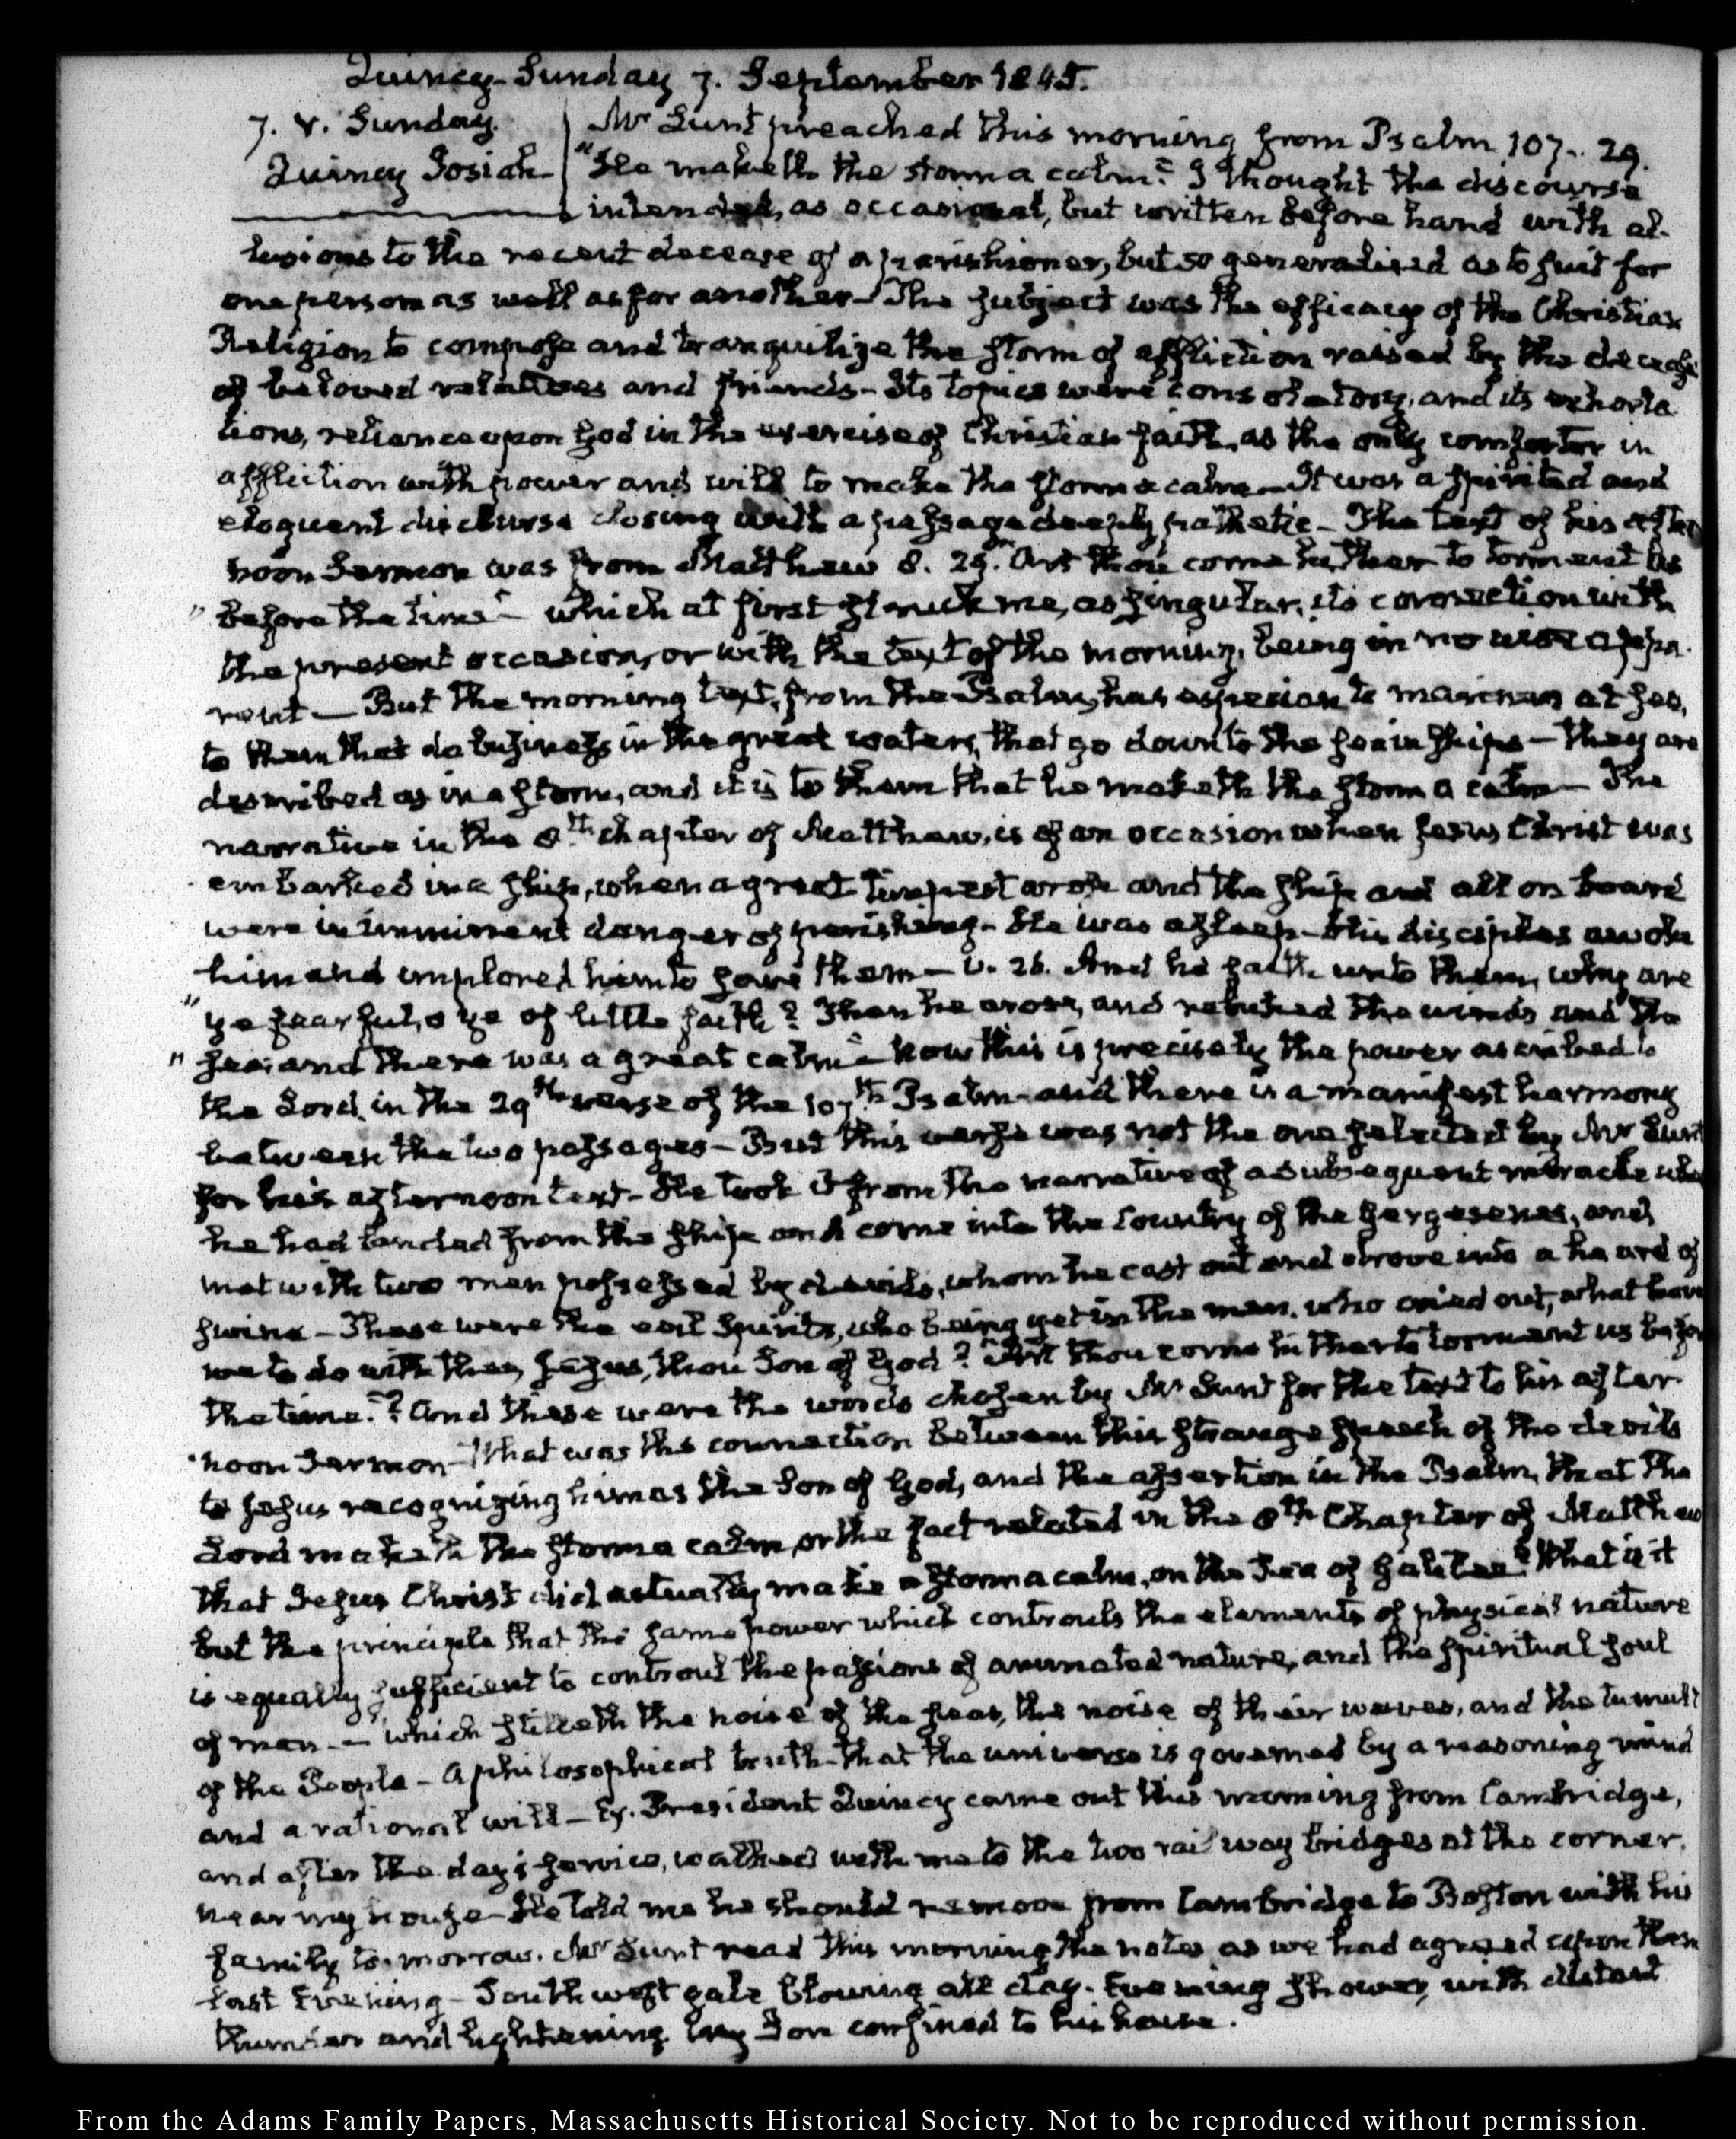 Quincy Sunday 7. September 1845.
7. V. Sunday.
Quincy Josiah
Mr Lunt preached this morning from Psalm 107. 29.
"He maketh the storm a calm." I thought the discourse
intended, as occasional, but written before hand with al-
lusions to the recent decease of a parishioner, but so generalised as to suit for
one person as well as for another— The subject was the efficacy of the Christian
Religion to compose and tranquilize the storm of affliction raised by the decease
of beloved relatives and friends— Its topics were consolatory, and its exhorta
tions, reliance upon God in the exercise of Christian faith, as the only comforter in
affliction with power and will to make the storm a calm— It was a spirited and
eloquent discourse closing with a passage deeply pathetic— The text of his after
noon Sermon was from Matthew 8. 29. "Art thou come hither to torment us
" before the time"— which at first struck me, as singular, its connection with
the present occasion, or with the text of the morning, being in no wise appa-
rent— But the morning text, from the Psalm, has especian to mariners at sea,
to them that do business in the great waters, that go down to the sea in ships— they are
described as in a storm, and it is to them that he maketh the storm a calm— The
narrative in the 8th chapter of Matthew, is of an occasion when Jesus Christ was
embarked in a ship, when a great tempest arose and the ship and all on board
were in imminent danger of perishing— He was asleep— His disciples awoke
him and implored him to save them— v. 26. And he saith unto them, why are
" ye fearful, o ye of little faith? Then he arose, and rebuked the winds and the
" sea; and there was a great calm"— Now this is precisely the power ascribed to
the Lord in the 29th verse of the 107th Psalm— and there is a manifest harmony
between the two passages— But this verse was not the one selected by Mr Lunt
for his afternoon text— He took it from the narrative of a subsequent miracle when
he had landed from the ship and come into the Country of the Gergesenes, and
met with two men possessed by devils, whom he cast out and drove into a heard of
swine— These were the evil Spirits, who being yet in the men, who cried out, what have
we to do with thee, Jesus, thou Son of God? "Art thou come hither to torment us before
the time."? and these were the words chosen by Mr Lunt for the text to his after
noon Sermon— What was the connection between this strange speech of the devils
to Jesus recognizing him as the Son of God, and the assertion in the Psalm, that the
Lord maketh the storm a calm, or the fact related in the 8th Chapter of Matthew
that Jesus Christ did actually make a storm a calm, on the Sea of Galilee? What is it
but the principle that the same power which controuls the elements of physical nature
is equally sufficient to controul the passions of animated nature, and the spiritual soul
of man— "which stilleth the noise of the seas, the noise of their waves, and the tumult
of the People— A philosophical truth— that the universe is governed by a reasoning mind
and a rational will— Ex. President Quincy came out this morning from Cambridge,
and after the day's service, walked with me to the two rail way bridges at the corner
near my house— He told me he should remove from Cambridge to Boston with his
family to-morrow. Mr Lunt read this morning the notes as we had agreed upon them
last Evening— South west gale blowing all day. Evening shower, with distant
thunder and lightening. My Son confined to his house.
From the Adams Family Papers, Massachusetts Historical Society. Not to be reproduced without permission.